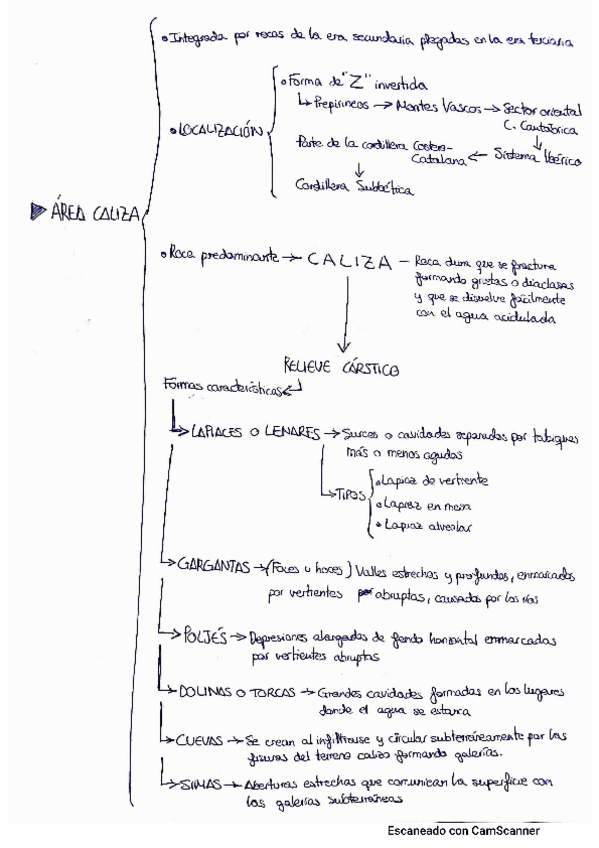 • Integrada por rocas de la era secundaria plegadas en la era terciaria
• LOCALIZACIÓN
• Forma de "Z" invertida
↳ Prepirineos → Montes Vascos → Sector oriental
C. Cantábrica
Parte de la cordillera Costero-
Catalana ← Sistema Ibérico
Cordillera Subbética
▶ ÁREA CALIZA
• Roca predominante → CALIZA – Roca dura que se fractura
formando grietas o diaclasas
y que se disuelve fácilmente
con el agua acidulada
RELIEVE CÁRSTICO
Formas características
→ LAPIACES O LENARES → Surcos o cavidades separados por tabiques
más o menos agudos
→ TIPOS
• Lapiaz de vertiente
• Lapiaz en mesa
• Lapiaz alveolar
→ GARGANTAS → (Foces u hoces) Valles estrechos y profundos, enmarcados
por vertientes abruptas, causados por los ríos
→ POLJÉS → Depresiones alargadas de fondo horizontal enmarcadas
por vertientes abruptas
→ DOLINAS O TORCAS → Grandes cavidades formadas en los lugares
donde el agua se estanca
→ CUEVAS → Se crean al infiltrarse y circular subterráneamente por las
fisuras del terreno calizo formando galerías.
→ SIMAS → Aberturas estrechas que comunican la superficie con
las galerías subterráneas
Escaneado con CamScanner